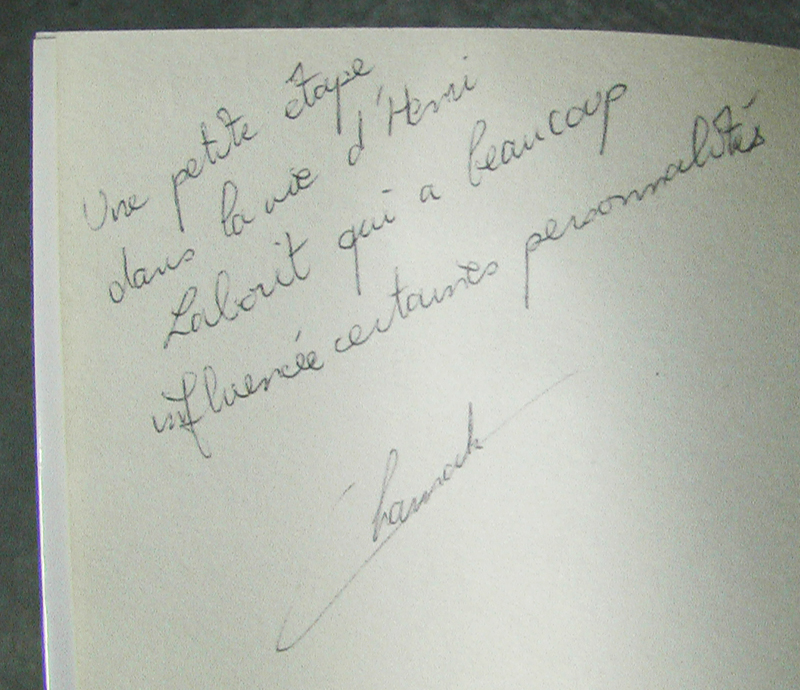 Une petite étape
dans la vie d'Henri
Laborit qui a beaucoup
influencée certaines personnalités